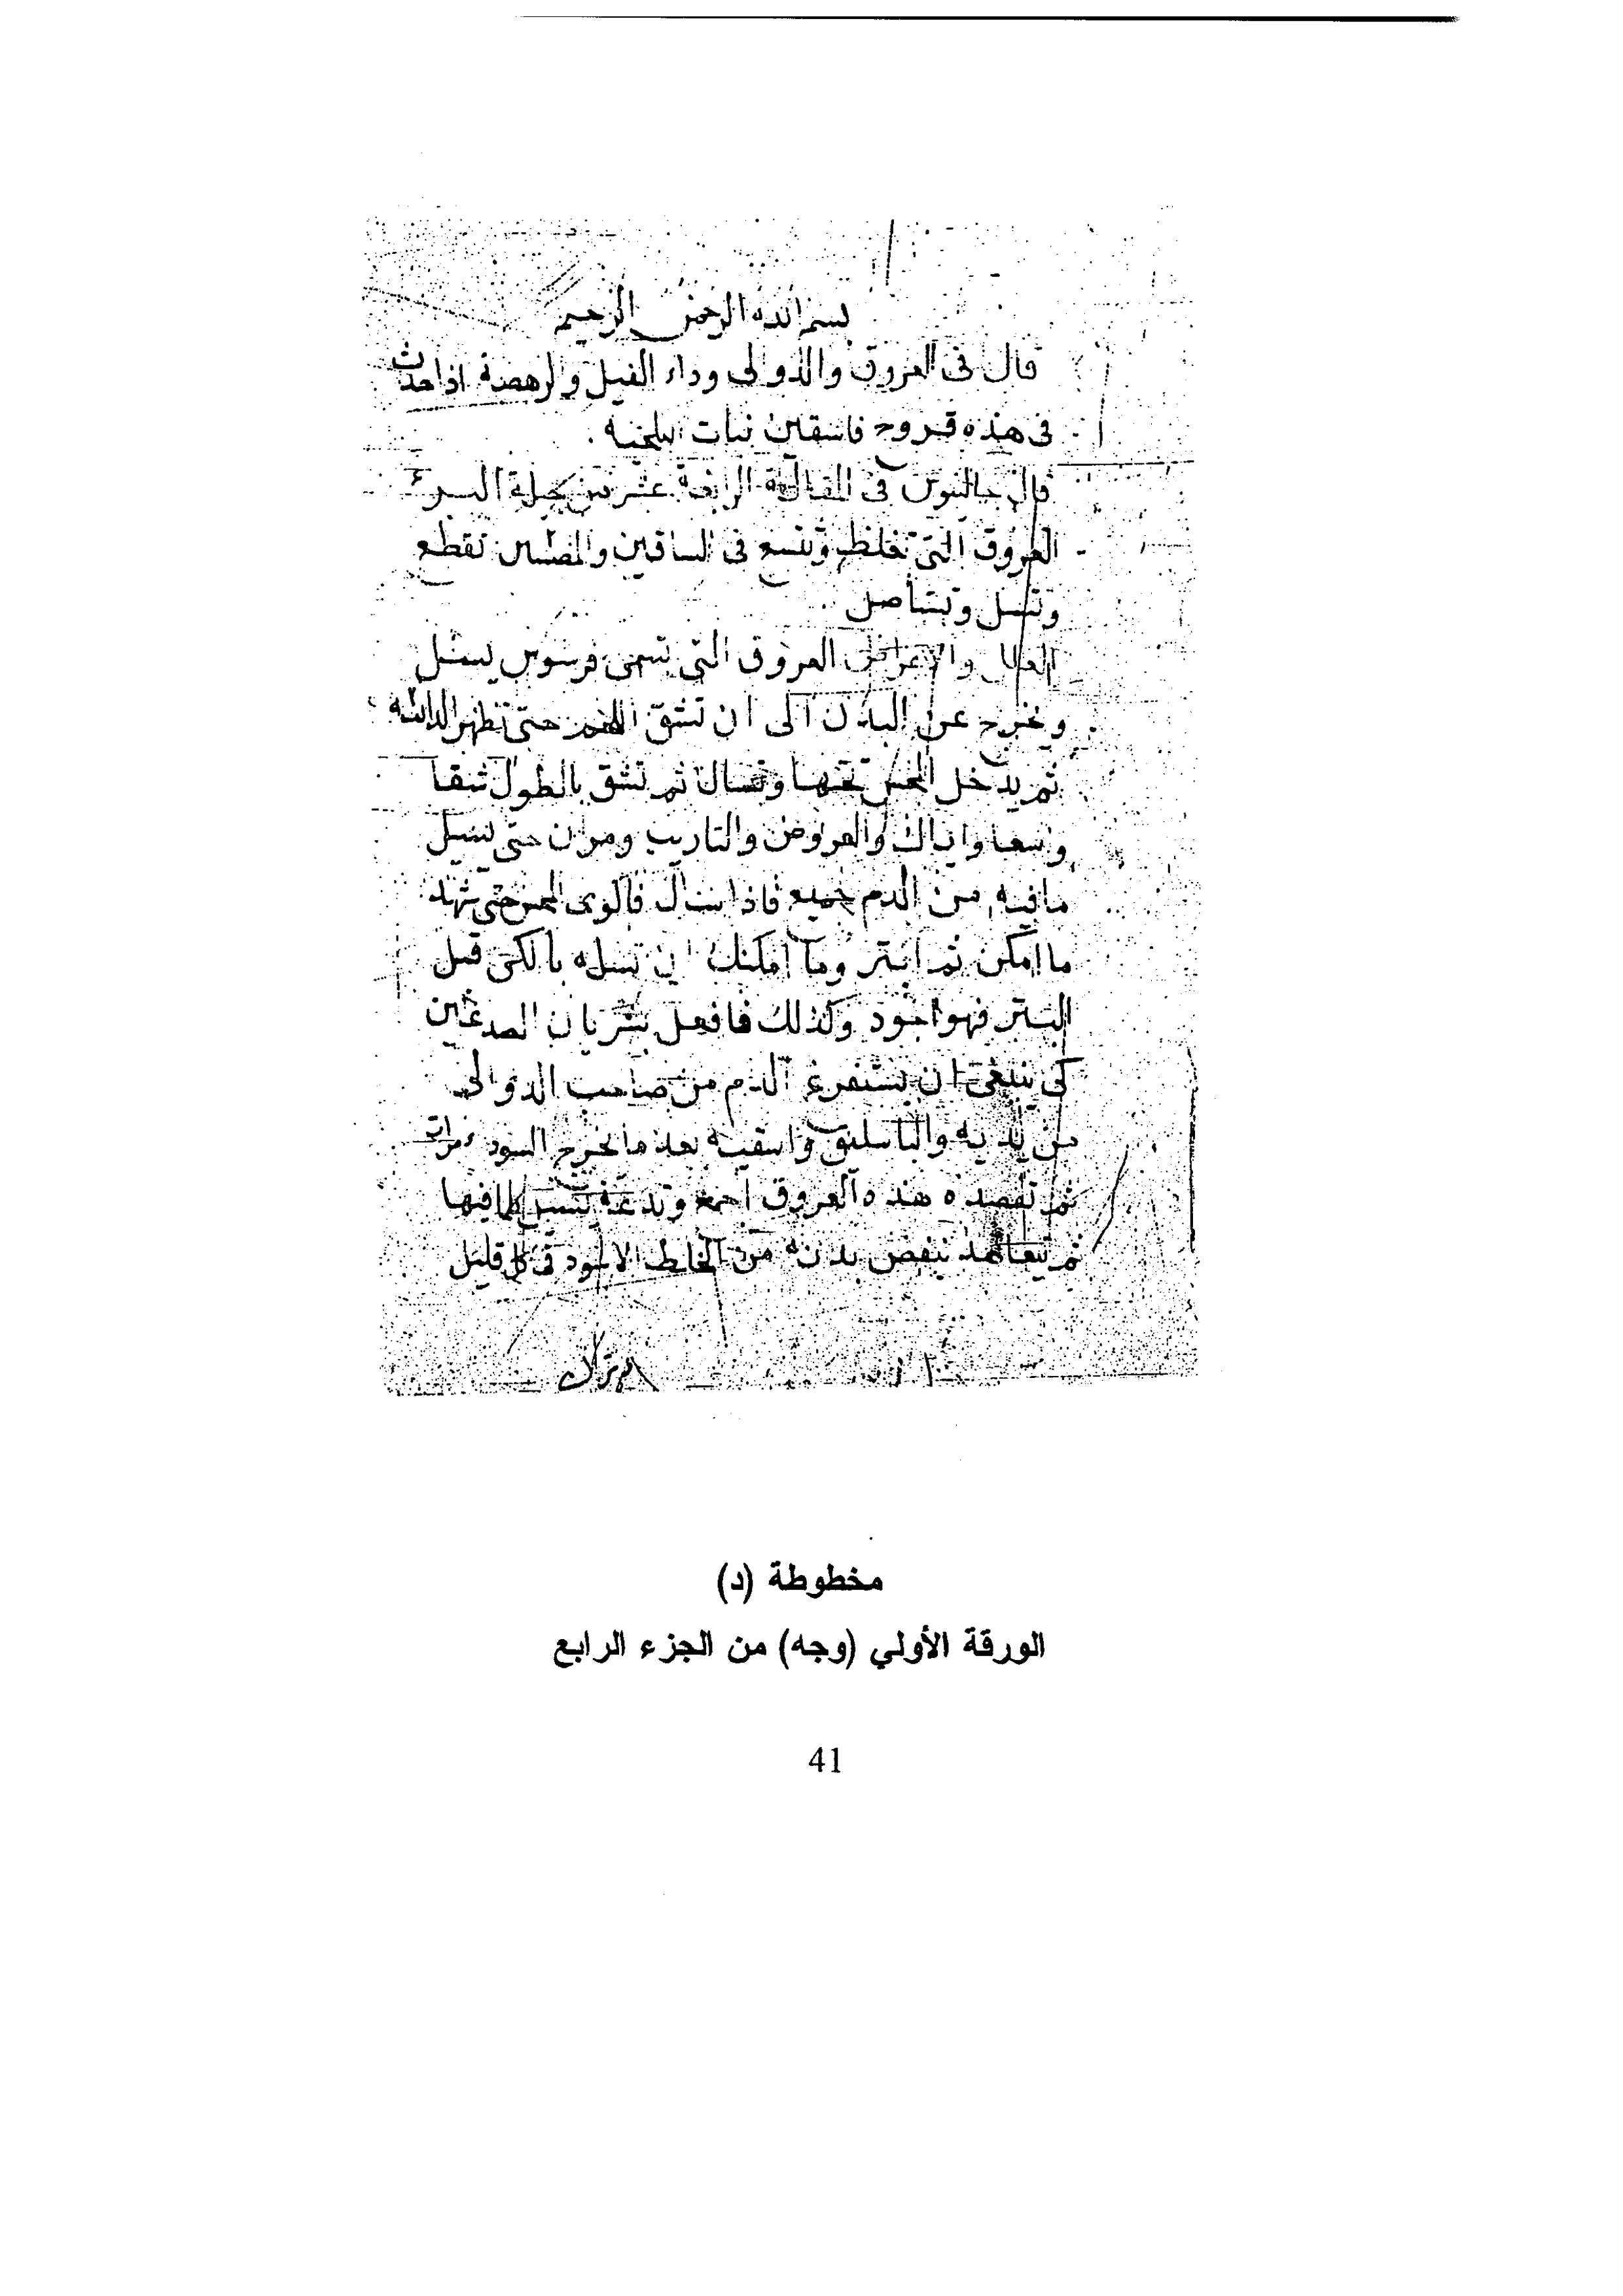 بسم الله الرحمن الرحيم
قال في العروق والدوالي وداء الفيل والرهصة اذا حدث
في هذه قروح فاسقين نبات
قال جالينوس في المقالة الرابعة عشر من حيلة البرء
العروق التي تغلظ وتتسع في الساقين تقطع
وتسل وتستأصل
العلل والاعراض العروق التي تسمى
عن البدن الى ان تشق حتى تظهر
ثم يدخل المجس تحتها وتسال ثم تشق بالطول شقا
واسعا واياك والعروض والتاريب حتى يسيل
ما فيه من الدم جميع فاذا حتى
ما امكن ثم ابتر وما امكنك ان تسله بالكي قبل
البتر فهو اجود وكذلك فافعل بشريان الصدغين
كي ينبغي ان يستفرغ الدم من صاحب الدوالي
من يديه والباسليق واسقيه بعد ما يخرج السود مرات
ثم تفصده هذه العروق اجمع كلما فيها
ثم بنفض بدنه من الخلط الاسود في كل قليل
مخطوطة (د)
الورقة الأولي (وجه) من الجزء الرابع
41